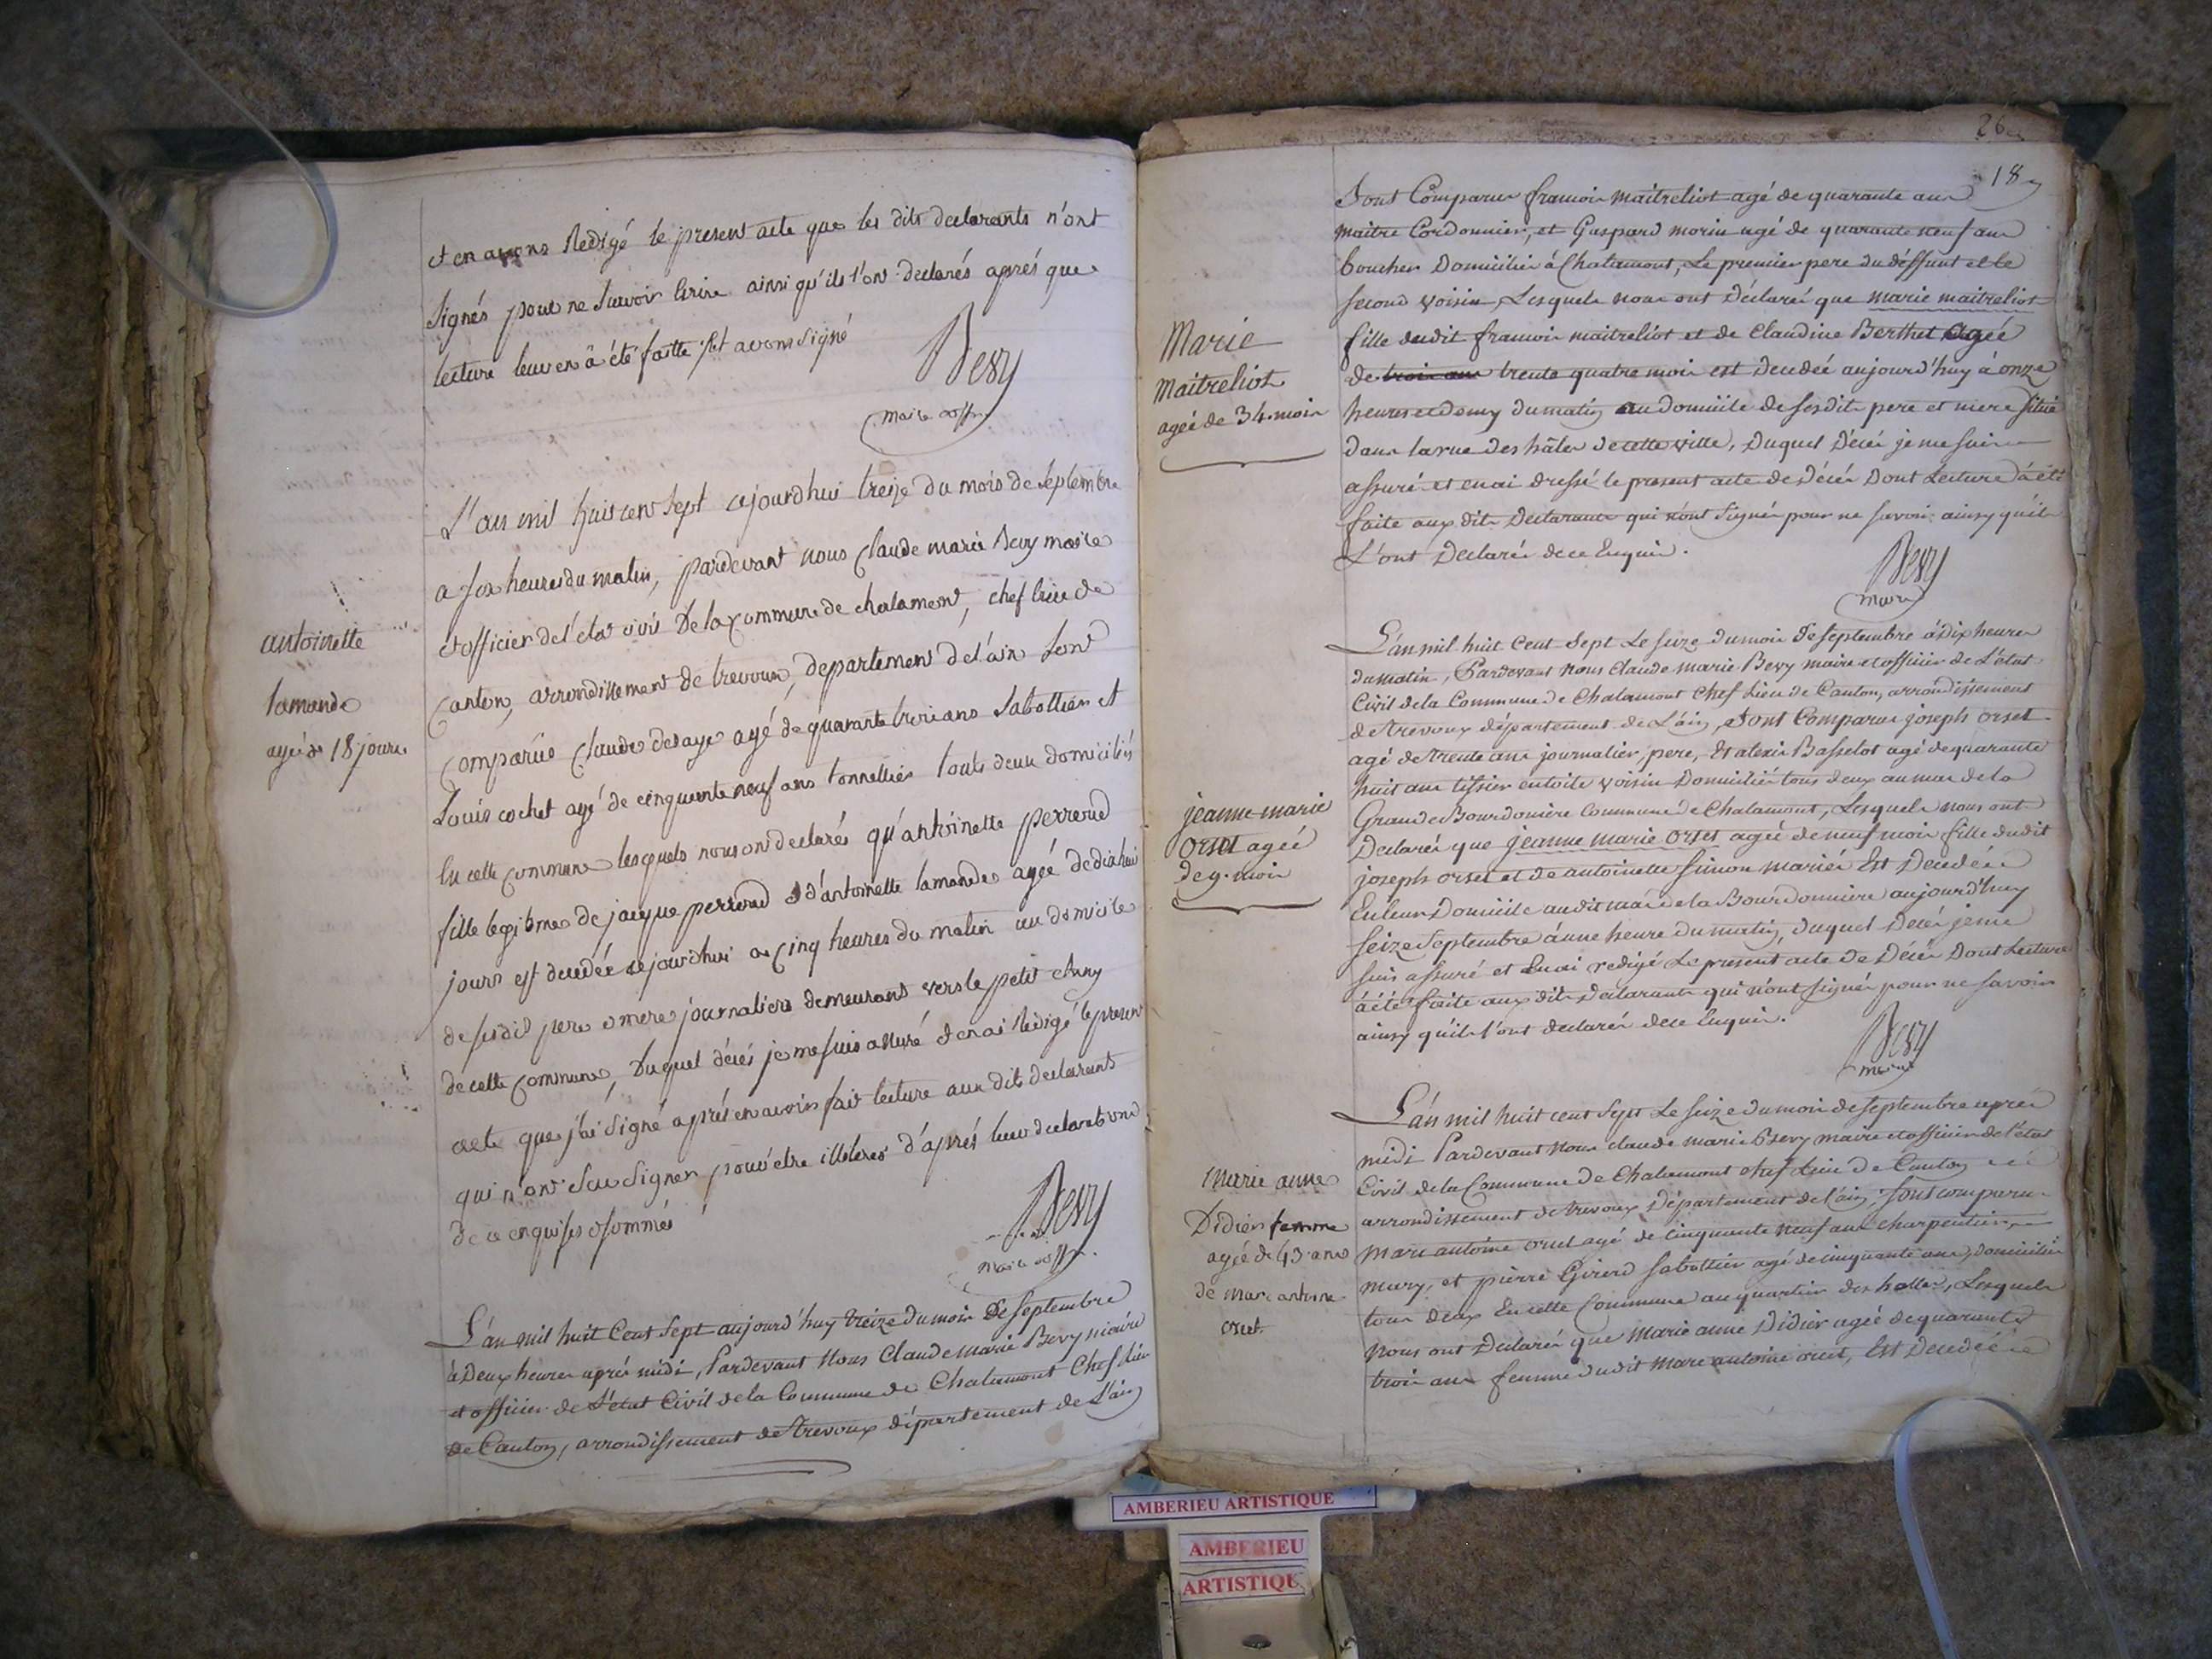 et en avons Redigé le present acte que les dits declarants n'ont
signés pour ne scavoir Ecrire ainsi qu'ils l'ont declarés aprés que
lecture leur en â été faitte, et avons signé
Bevy
maire & off.
antoinette
lamande
agée de 18 jours
L'an mil huit cent sept ajourdhui treize du mois de septembre
a six heures du matin, pardevant nous Claude marie Bevy maire
et officier de l'etat civil De la Commune de chalamont, chef lieu de
Canton, arrondissement de trevoux, departement de l'ain sont
Comparûs Claude desaye agé de quarante trois ans sabottier et
Louis cochet agé de cinquante neuf ans tonnellier touts deux domiciliés
En cette Commune lesquels nous ont declarés qu'antoinette perroud
fille legitime de jacque perroud & d'antoinette lamande agée de dixhuit
jours est decedée aejourdhui a Cinq heures du matin au domicile
de ses dit pere & mere journaliers demeurants vers le petit etang
de cette Commune, Duquel décés je me suis assuré & en ai Redigé le present
acte que j'ai signé aprés en avoir fait lecture aux dits declarants
qui n'ont scu signer pour etre illeteres d'aprés leur declaration
de ce enquis & sommés
Bevy
maire & off.
L'an mil huit Cent Sept aujourd'huy treize du mois De Septembre
à Deux heures aprés midi, Pardevant Nous Claude marie Bevy maire
et officier de L'état Civil de la Commune de Chalamont Chef Lieu
de Canton, arrondissement de Trevoux département de L'ain
26
18
Sont Comparus francois maitreliot agé de quarante ans
maitre Cordonnier, et Gaspard morin agé de quarante neuf ans
boucher Domicilier à Chalamont, Le premier pere du déffunt et le
second voisin, Lesquels nous ont Déclarés que marie maitreliot
fille dudit francois maitreliot et de Claudine Berthet agée
de trois ans trente quatre mois est Decedée aujourd'huy à onze
heures et demy du matin au domicile de ses dits pere et mere situé
dans la rue des hâles de cette ville, Duquel Décés je me suis
assuré et en ai dressé le present acte de Décés Dont Lecture à été
faite aux dits Declarants qui n'ont signés pour ne savoir ainsy qu'ils
L'ont Declarés de ce Enquis.
Bevy
maire
Marie
Maitreliot
agée de 34 mois
L'an mil huit Cent Sept Le seize du mois de septembre à Dix heures
du matin, Pardevant Nous Claude marie Bevy maire et officier de L'état
Civil de la Commune de Chalamont Chef Lieu de Canton, arrondissement
de trevoux département de L'ain, Sont Comparus joseph orset
agé de trente ans journalier, pere, Et alexis Basselot agé de quarante
huit ans tissier en toile voisin Domicilier tous deux au mas de la
Grande Bourdonière Commune de Chalamont, Lesquels nous ont
Declarés que jeanne marie orset agée de neuf mois fille dudit
joseph orset et de antoinette simon mariés Est Decedée
En leur Domicile audit mas de la Bourdonnière aujourd'huy
seize Septembre à une heure du matin, Duquel Decés je me
suis assuré et En ai redigé Le present acte De Décés Dont Lecture
à été faite aux dits Declarants qui n'ont signés pour ne savoir
ainsy qu'ils l'ont declarés de ce Enquis.
Bevy
maire
jeanne marie
orset agée
de 9. mois
L'an mil huit cent Sept Le seize du mois de septembre aprés
midi Pardevant Nous claude marie Bevy maire et officier de l'état
Civil de la Commune de Chalamont chef Lieu de Canton
arrondissement de trevoux Département de l'ain; sont comparu
marc antoine oruet agé de cinquante neuf ans charpentier
mary, et pierre Girerd sabottier agé de cinquante ans, domicilier
tous deux En cette Commune au quartier des halles, Lesquels
nous ont Declarés que Marie anne Didier agée de quarante
trois ans femme dudit Marc antoine oruet, Est Decedée
Marie anne
Didier femme
agée de 43 ans
de marc antoine
oruet.
AMBERIEU ARTISTIQUE
AMBERIEU
ARTISTIQU